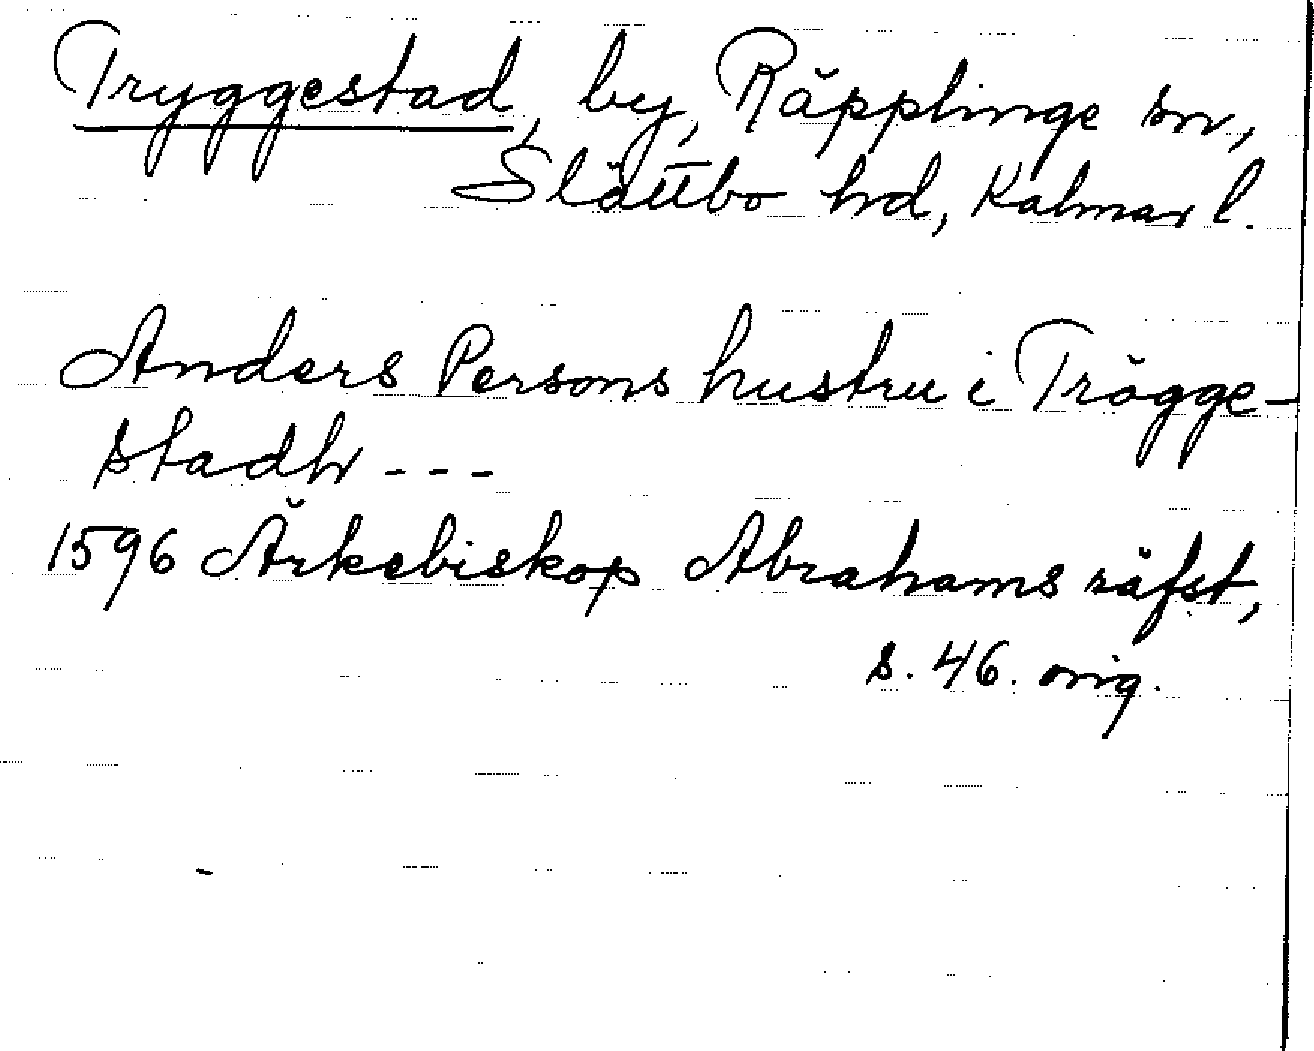 Tryggestad, by, Räpplinge sn,
Slättbo hrd, Kalmar l.
Anders Persons hustru i Trögge-
stadh - - -
1596 Ärkebiskop Abrahams räfst,
s. 46. orig.